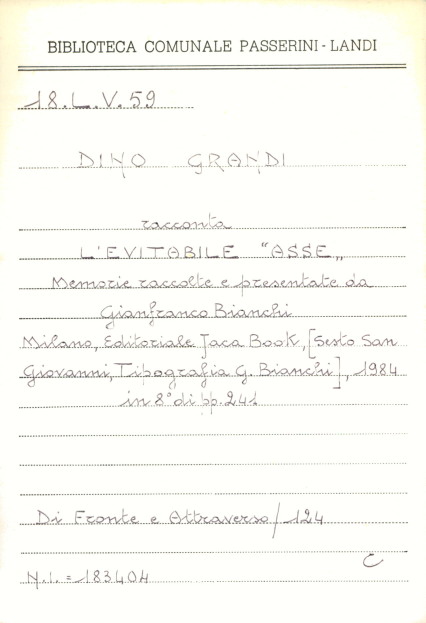 BIBLIOTECA COMUNALE PASSERINI - LANDI
18.L.V.59
DINO GRANDI
racconta
L'EVITABILE "ASSE„
Memorie raccolte e presentate da
Gianfranco Bianchi
Milano, Editoriale Jaca Book, [Sesto San
Giovanni, Tipografia G. Bianchi], 1984
in 8° di pp. 241
Di Fronte e Attraverso / 124
C
N.i. = 183404